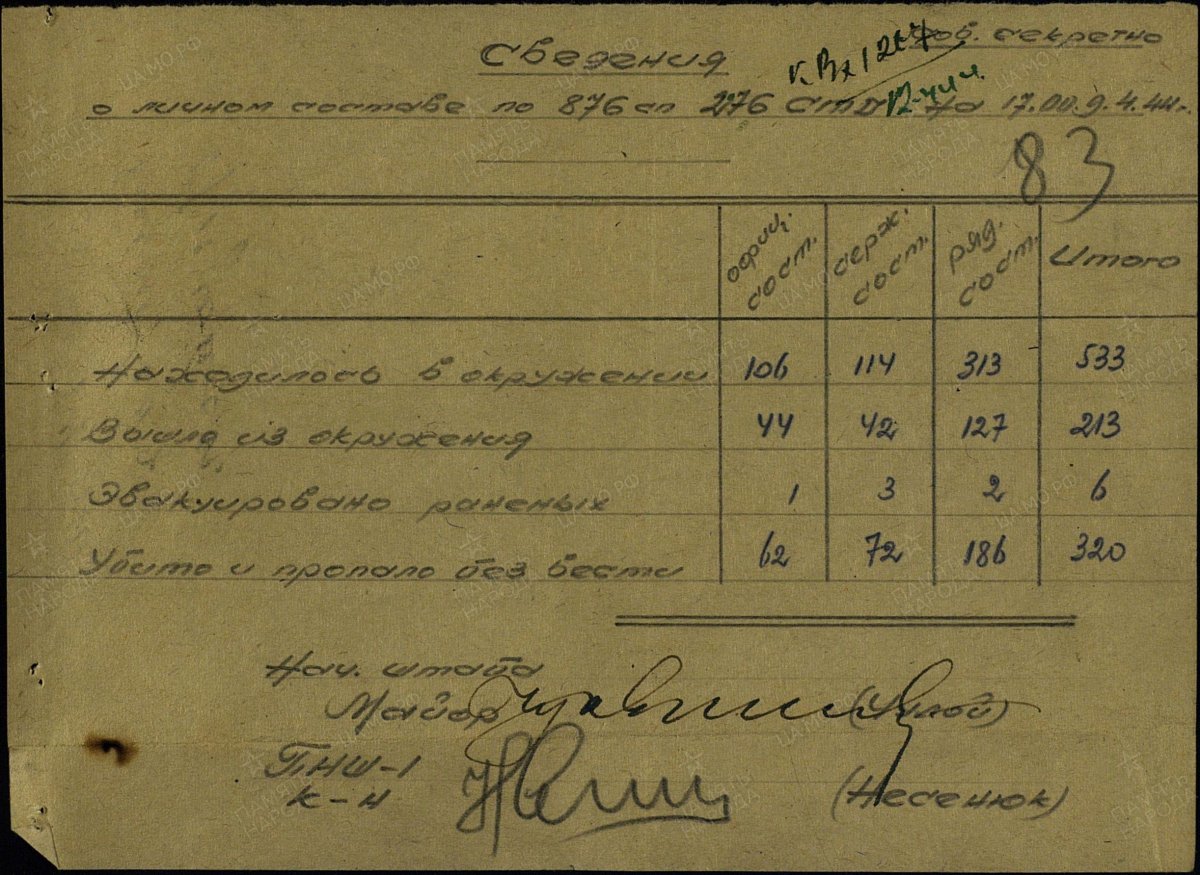 Сов. секретно
Сведения
о личном составе по 876 сп 276 на 17.00 9.4.44г.
83
офиц. сост. серж. сост. ряд. сост. Итого
Находилось в окружении 106 114 313 533
Вышло из окружения 44 42 127 213
Эвакуировано раненых 1 3 2 6
Убито и пропало без вести 62 72 186 320
Нач. штаба
Майор
ПНШ-1
к-н (Несенюк)
ПАМЯТЬ НАРОДА
ЦАМО.РФ